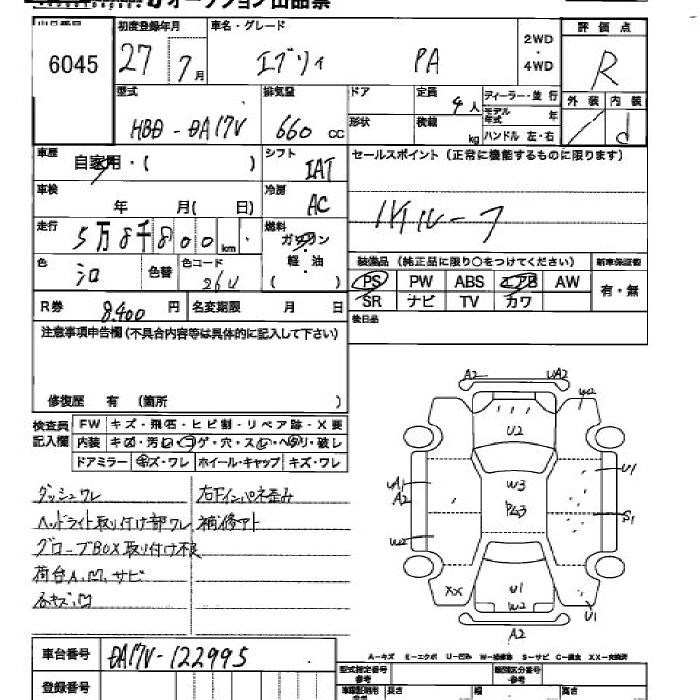 オークション出品票
出品番号
6045
初度登録年月
27 7月
車名・グレード
エブリィ PA
2WD
・
4WD
評価点
R
外装 内装
d
型式
HBD-DA17V
排気量
660 cc
ドア
形状
定員
4人
積載
kg
ディーラー・並行
モデル年式 年
ハンドル 左・右
車歴
自家用・( )
シフト
IAT
セールスポイント(正常に機能するものに限ります)
ハイルーフ
車検
年 月( 日)
冷房
AC
走行
5万8千800km
燃料
ガソリン
・
軽・油
( )
色
シロ
色替
色コード
26U
装備品(純正品に限り○をつけてください)
新車保証書
PS PW ABS エアB AW
SR ナビ TV カワ
有・無
R券
8,400円
名変期限 月 日
後日品
注意事項申告欄(不具合内容等は具体的に記入して下さい)
修復歴 有 (箇所 )
検査員
記入欄
FW キズ・飛石・ヒビ割・リペア跡・X要
内装 キズ・汚れ・コゲ・穴・スレ・ヘタリ・破レ
ドアミラー キズ・ワレ ホイール・キャップ キズ・ワレ
ダッシュワレ
右下インパネ歪み
ヘッドライト取り付け部ワレ
補修アト
グローブBOX取り付け不良
荷台A.凹.サビ
A2
UA2
U2
U1
A2
W3
U1
S1
W2
XX
U1
W2
U1
A2
A-キズ E-エクボ U-凹み W-補修跡 S-サビ C-腐食 XX-交換済
車台番号
DA17V-122995
登録番号
型式指定番号
参考
類別区分番号
参考
長さ
幅
高さ